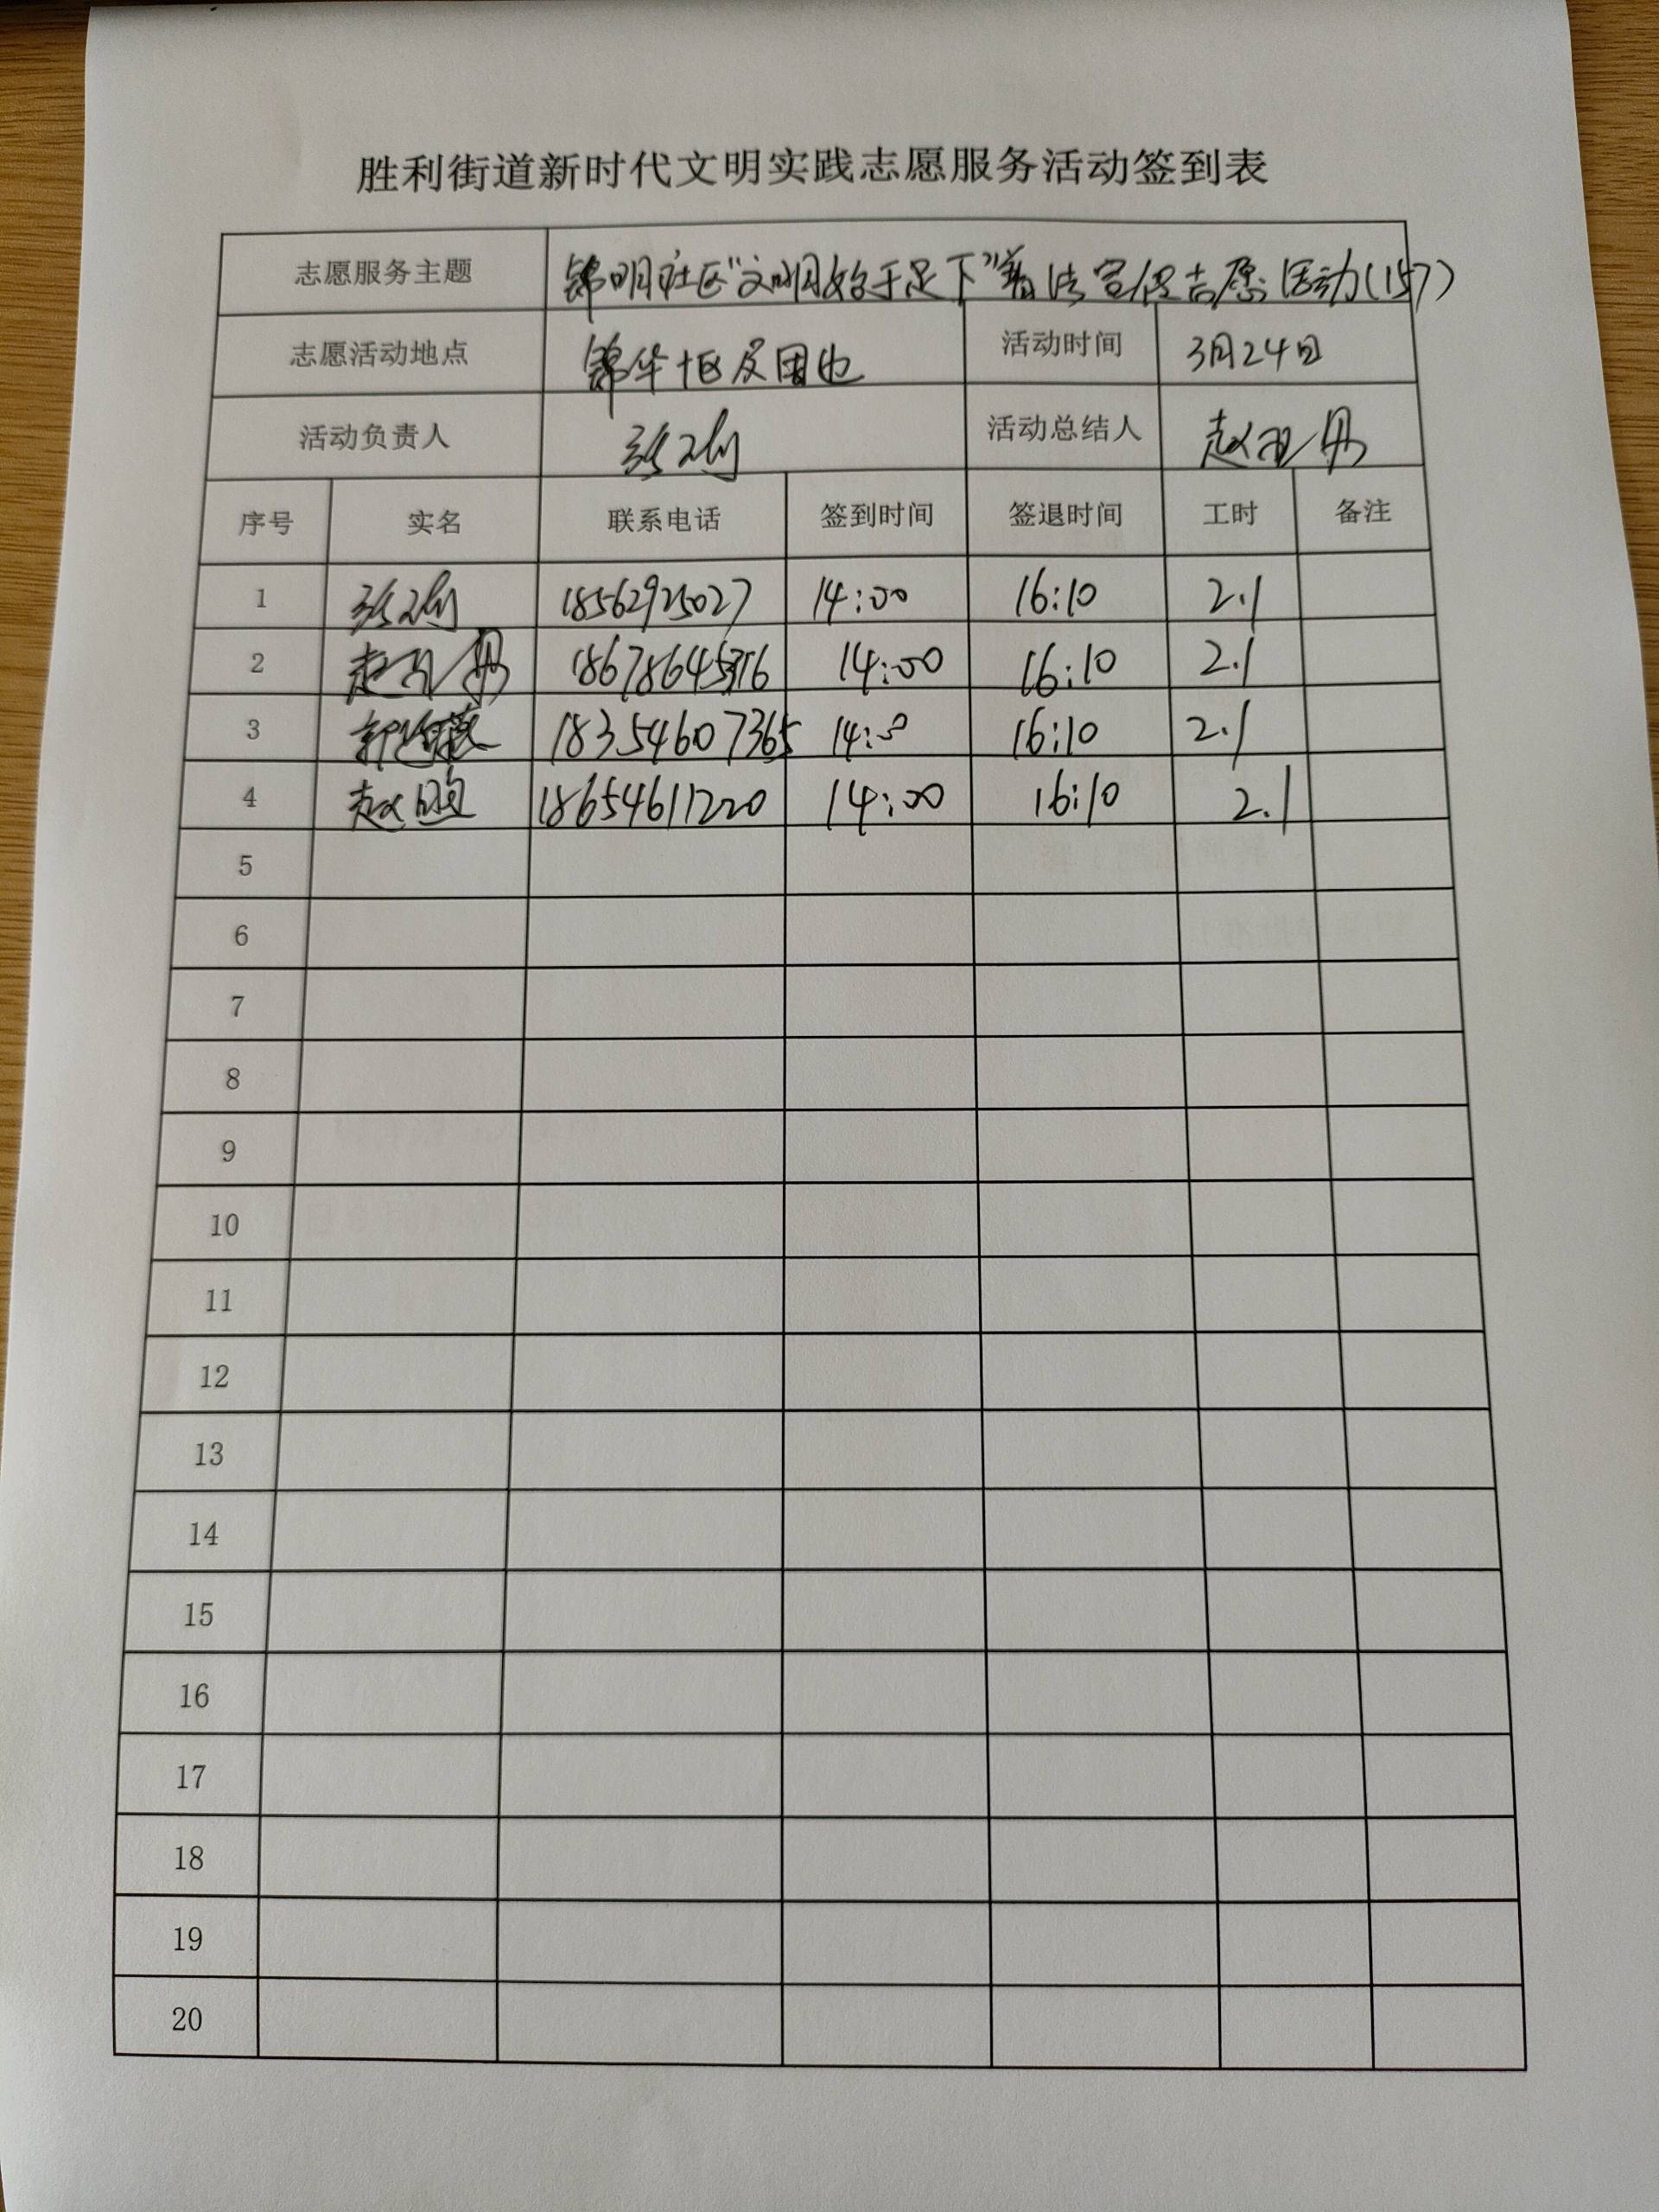 胜利街道新时代文明实践志愿服务活动签到表
志愿服务主题 锦明社区"文明始于足下"普法宣传志愿活动(157)
志愿活动地点 锦华十区及周边 活动时间 3月24日
活动负责人 活动总结人 赵丹
序号 实名 联系电话 签到时间 签退时间 工时 备注
1 18562925027 14:00 16:10 2.1
2 赵丹 14:00 16:10 2.1
3 18354607365 16:10 2.1
4 赵 18654611220 14:00 16:10 2.1
5
6
7
8
9
10
11
12
13
14
15
16
17
18
19
20